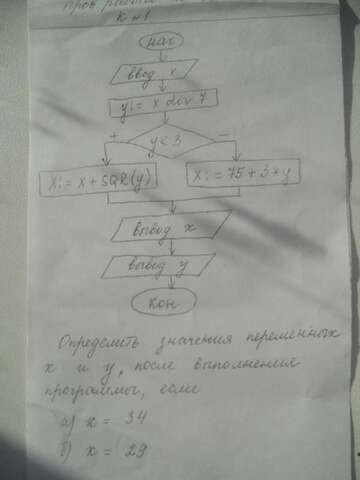 Пров работа
К н1
нач
ввод x
y:= x div 7
+ y<3 −
X:= x + SQR(y) X:= 75+3*y
вывод x
вывод y
кон
Определить значения переменных
x и y, после выполнения
программы, если
а) x = 34
б) x = 29